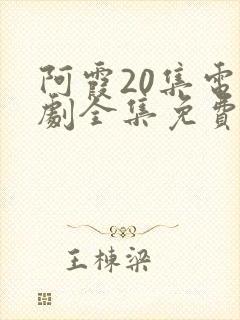 阿霞20集電
劇全集免費
王棟梁